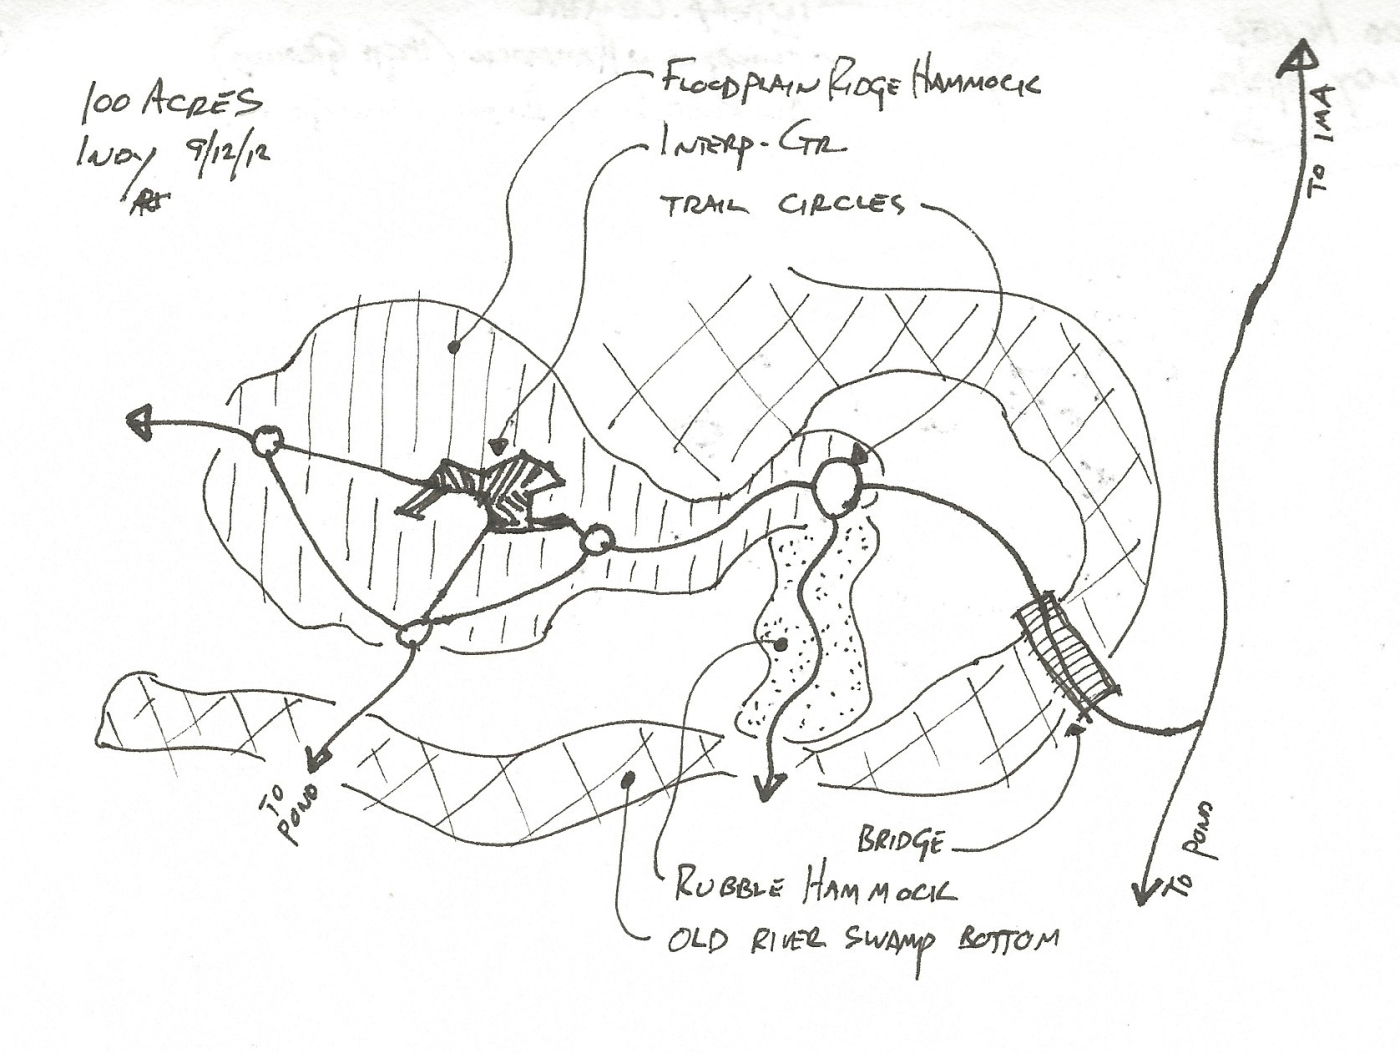 100 ACRES
INDY 9/12/12
FLOODPLAIN RIDGE HAMMOCK
INTERP. CTR
TRAIL CIRCLES
TO IMA
TO
POND
BRIDGE
TO POND
RUBBLE HAMMOCK
OLD RIVER SWAMP BOTTOM